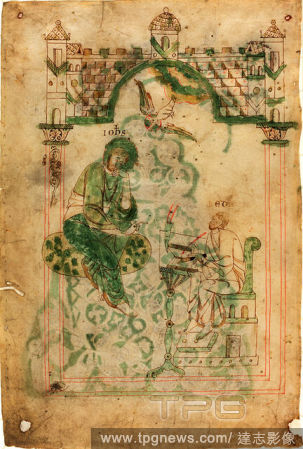 IOBS
TPG
www.tpgnews.com / 達志影像